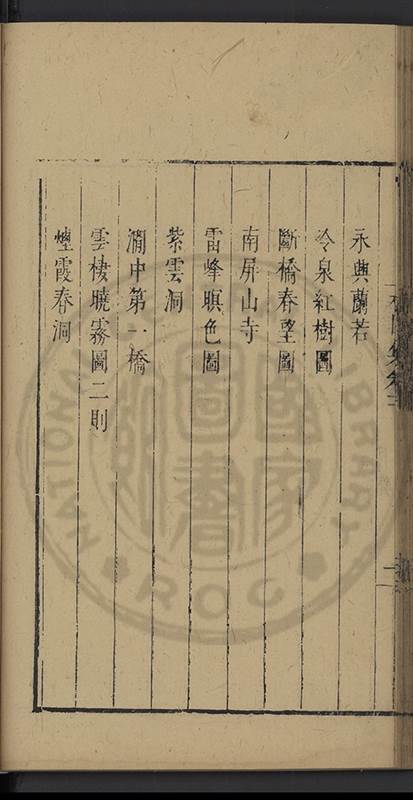 永興蘭若
冷泉紅樹圖
斷橋春望圖
南屏山寺
雷峰暝色圖
紫雲洞
澗中第一橋
雲棲曉霧圖二則
煙霞春洞
國家圖書館
NATIONAL LIBRARY
ROC